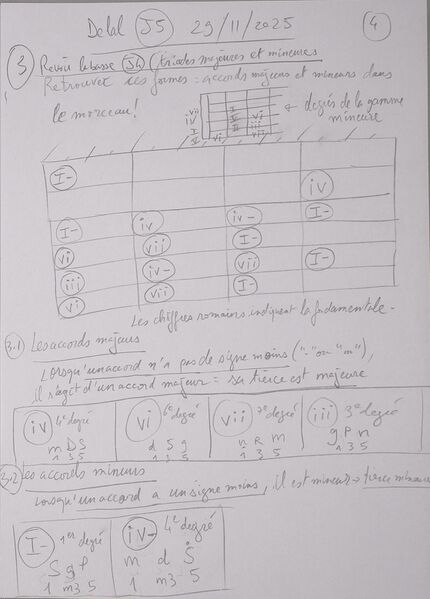 Delal J5 29/11/2025 4
3 Revoir la base J4 (triades majeures et mineures
Retrouver ces formes = accords majeurs et mineurs dans
le morceau!
← degrés de la gamme
mineure
I-
iv
I- iv iv- I-
vi vii I-
iii iv- vii I-
vi vii I-
Les chiffres romains indiquent la fondamentale -
3.1) Les accords majeurs
Lorsqu'un accord n'a pas de signe moins ("-" ou "m"),
il s'agit d'un accord majeur = sa tierce est majeure
iv 4e degré vi 6e degré vii 7e degré iii 3e degré
m D S d S g n R m g P n
1 3 5 1 3 5 1 3 5 1 3 5
3.2 Les accords mineurs
Lorsqu'un accord a un signe moins, il est mineur → tierce mineure
I- 1er degré iv- 4e degré
S g P m d S
1 m3 5 1 m3 5